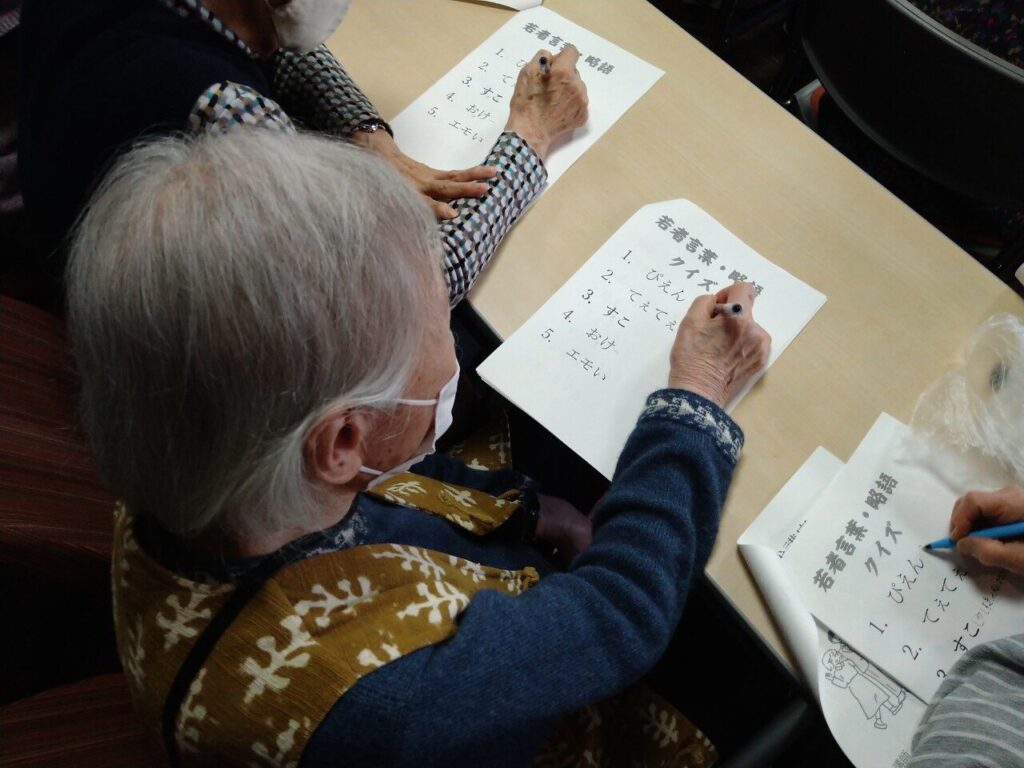 若者言 ・略語
1.
2. て
3. すこ
4. おけ
5. エモい
若者言葉・略語
クイズ
1. ぴえん
2. てぇてぇ
3. すこ
4. おけ
5. エモい
若者言葉・略語
クイズ
1. ぴえん
2. てぇてぇ
3. すこ